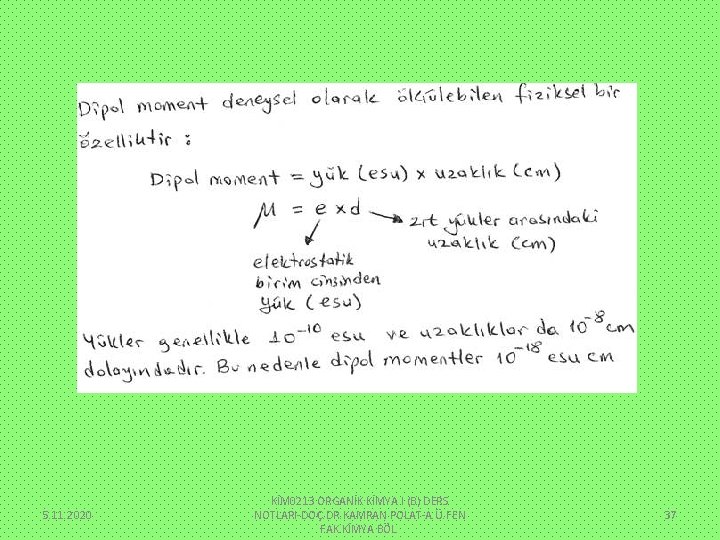 Dipol moment deneysel olarak ölçülebilen fiziksel bir
özelliktir :
Dipol moment = yük (esu) x uzaklık (cm)
μ = e x d → zıt yükler arasındaki
uzaklık (cm)
elektrostatik
birim cinsinden
yük (esu)
Yükler genellikle 10⁻¹⁰ esu ve uzaklıklar da 10⁻⁸ cm
dolayındadır. Bu nedenle dipol momentler 10⁻¹⁸ esu cm
5.11.2020
KİM0213 ORGANİK KİMYA I (B) DERS
NOTLARI-DOÇ.DR.KAMRAN POLAT-A.Ü.FEN
FAK.KİMYA BÖL
37